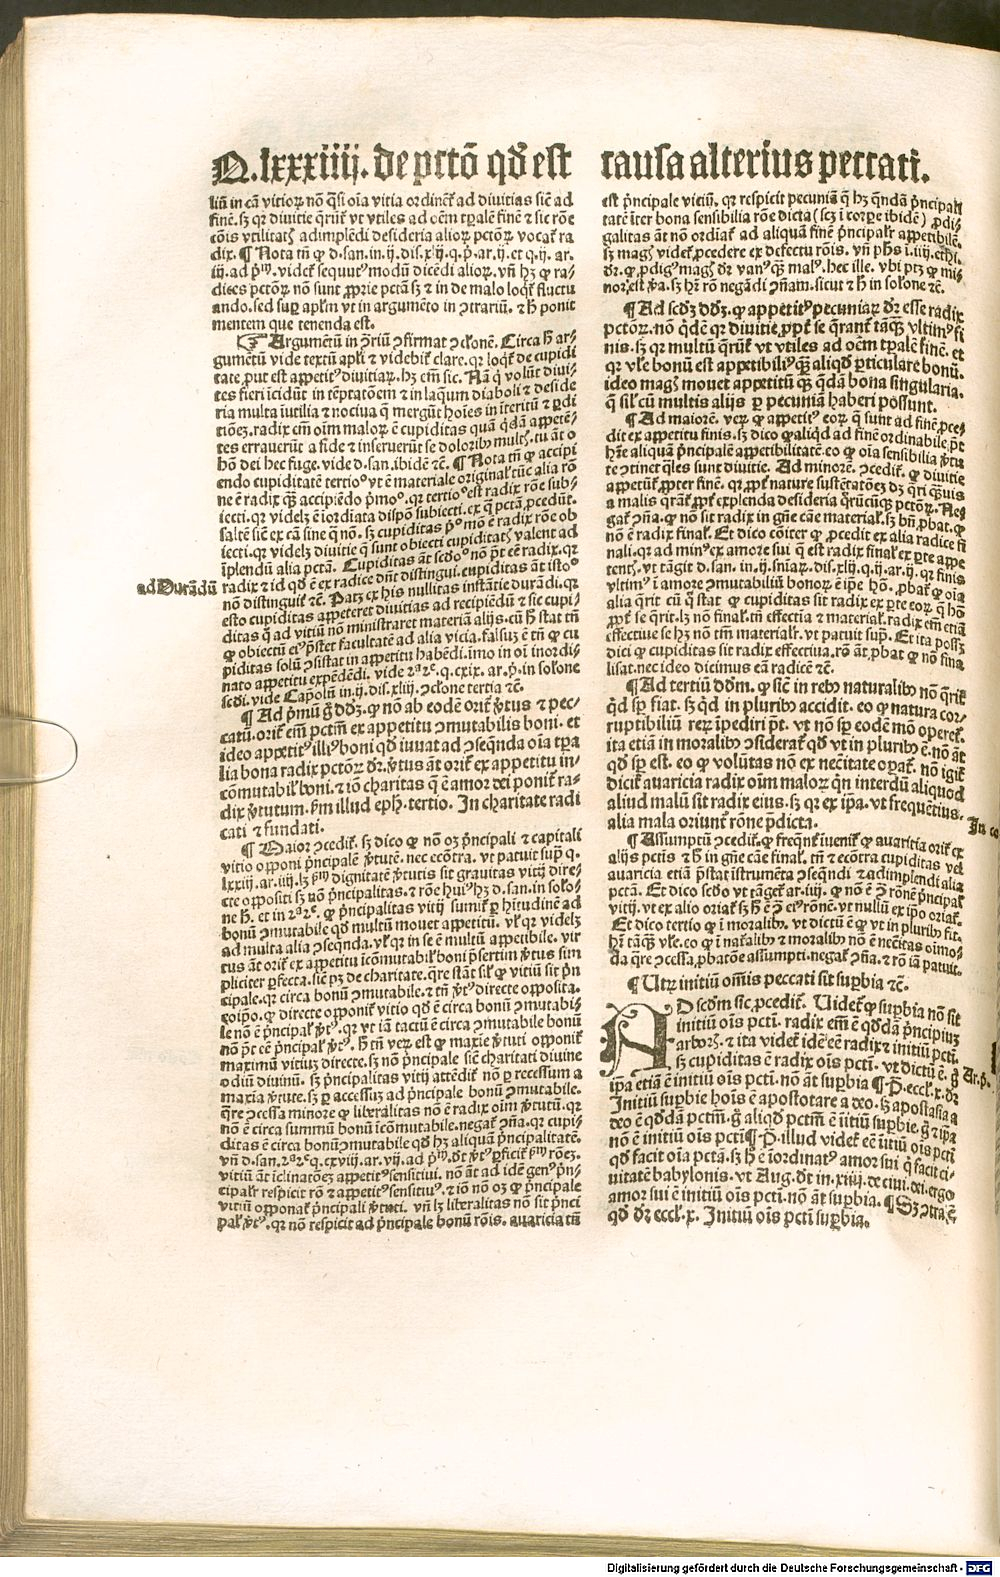 Q.lxxxiiij. de pctō qđ est causa alterius peccati.
liū in cā vitioꝝ nō q̄si oīa vitia ordinēt̄ ad diuitias siē ad
finē. sꝫ qꝛ diuitie q̄rūt̄ vt vtiles ad oēm tp̄alē finē ⁊ sic rōe
cōis vtilitatꝭ adimplēdi desideria alioꝝ pctōꝝ vocat̄ ra
dix. ¶ Nota tn̄ ꝙ d. san. in .ij. dis. xlij. q. p̄. ar. ij. et q. ij. ar.
iij. ad pᵐ. videt̄ sequutꝰ modū dicēdi alioꝝ. vn̄ hꝫ ꝙ ra/
dices pctōꝝ nō sunt ꝓprie pctā sꝫ ⁊ in de malo loqt̄ fluctu
ando. sed suꝑ apl̄m vt in argumēto in ↄtrariū. ⁊ h̄ ponit
mentem que tenenda est.
Argumētū in ↄ̄riū ↄfirmat ↄclonē. Circa h̄ ar/
gumētū vide textū apl̄i ⁊ videbit̄ clare. qꝛ loqt̄ de cupidi
tate ꝓut est appetitꝰ diuitiaꝝ. hꝫ em̄ sic. Nā q̇ volūt diui/
tes fieri icidūt in tēptatōem ⁊ in laqum diaboli ⁊ deside
ria multa iutilia ⁊ nociua q̄ mergūt hoīes in iteritū ⁊ ꝑdi
tiōeꝫ. radix em̄ oīm maloꝝ ē cupiditas quā q̇dā appetē/
tes errauerūt a fide ⁊ inseruerūt se doloribꝰ multꝭ. tu āt o
hō dei hec fuge. vide d. san. ibidē ⁊c. ¶ Nota tn̄ ꝙ accipi
endo cupiditatē tertioº vt ē materiale originalꝭ tūc alia rō
ne ē radix qꝫ accipiēdo p̄moº. qꝛ tertioº est radix rōe sub/
iecti. qꝛ videlꝫ ē iordiata dispō subiecti. ex q̄ pctā ꝓcedūt.
saltē siē ex cā sine q̄ nō. sꝫ cupiditas p̄º mō ē radix rōe ob
iecti. qꝛ videlꝫ diuitie q̄ sunt obiecti cupiditatꝭ valent ad
īplendū alia pctā. Cupiditas āt scd̄oº nō pōt eē radix. qꝛ
ad Durādū
radix ⁊ id qđ ē ex radice dn̄t distingui. cupiditas āt istoº
nō distinguit̄ ⁊c. Patꝫ ex his nullitas instātie durādi. qꝛ
esto cupiditas appeteret diuitias ad recipiēdū ⁊ sic cupi/
ditas q̄ ad vitiū nō ministraret materiā alijs. cū h̄ stat tn̄
ꝙ obiectū eiꝰ p̄stet facultatē ad alia vicia. falsuꝫ ē tn̄ ꝙ cu
piditas solū ↄsistat in appetitu habēdi. imo in oī inordi/
nato appetitu expēdēdi. vide 2ᵃ2ᵉ. q. cxix. ar. p̄. in solone
scd̄i. vide Capolū in .ij. dis. xliij. ↄclone tertia ⁊c.
¶ Ad p̄mū ḡ dōꝫ. ꝙ nō ab eodē orit̄ v̄tus ⁊ pec/
catū. orit̄ em̄ pctm̄ ex appetitu ↄmutabilis boni. et
ideo appetitꝰ illiꝰ boni qđ iuuat ad ↄseqnda oīa tp̄a
lia bona radix pctōꝝ dr̄. v̄tus āt orit̄ ex appetitu in/
cōmutabilꝭ boni. ⁊ iō charitas q̄ ē amor dei ponit̄ ra/
dix v̄tutum. ẜm illud eph. tertio. In charitate radi
cati ⁊ fundati.
¶ Maior ↄcedit̄. sꝫ dico ꝙ nō oꝫ p̄ncipali ⁊ capitali
vitio opponi p̄ncipalē v̄tutē. nec ecōtra. vt patuit supͣ q.
lxxiij. ar. iiij. lꝫ ẜm dignitatē v̄tutis sit grauitas vitij dire/
cte oppositi sꝫ nō p̄ncipalitas. ⁊ rōe huiꝰ hꝫ d. san. in solo/
ne h̄. et in 2ᵃ2ᵉ. ꝙ p̄ncipalitas vitij sumit̄ ꝑ hītudinē ad
bonū ↄmutabile qđ multū mouet appetitū. vl̄ qꝛ videlꝫ
ad multa alia ↄseqnda. vl̄ qꝛ in se ē multū appetibile. vir
tus āt orit̄ ex appetitu icōmutabilꝭ boni p̄sertim v̄tus sim
pliciter ꝑfecta. siē pꝫ de charitate. q̄re stāt sil̄ ꝙ vitiū sit p̄n
cipale. qꝛ circa bonū ↄmutabile. ⁊ tn̄ v̄tꝰ directe opposita.
coipᵒ. ꝙ directe opponit̄ vitio qđ ē circa bonū ↄmutabi/
le nō ē p̄ncipalꝭ v̄tꝰ. qꝛ vt iā tactū ē circa ↄmutabile bonū
nō pōt eē p̄ncipalꝭ v̄tꝰ. h̄ tn̄ veꝝ est ꝙ maxie v̄tuti opponit̄
maximū vitiuꝫ directe. sꝫ nō p̄ncipale siē charitati diuine
odiū diuinū. sꝫ p̄ncipalitas vitij attēdit̄ nō ꝑ recessum a
maxia v̄tute. sꝫ ꝑ accessuꝫ ad p̄ncipale bonū ↄmutabile.
q̄re ↄcessa minore ꝙ liberalitas nō ē radix oīm v̄tutū. qꝛ
nō ē circa summū bonū icōmutabile. negat̄ ↄn̄a. qꝛ cupi/
ditas ē circa bonū ↄmutabile qđ hꝫ aliquā p̄ncipalitatē.
vn̄ d. san. 2ᵃ2ᵉ q. cxviij. ar. vij. ad pᵐ. dt̄ v̄tꝰ ꝑficit̄ ẜm rōeꝫ.
vitiū āt īclinatōeꝫ appetitꝰ sensitiui. nō āt ad idē genꝰ p̄n/
cipalr̄ respicit rō ⁊ appetitꝰ sensitiuꝰ. ⁊ iō nō oꝫ ꝙ p̄ncipale
vitiū opponat̄ p̄ncipali v̄tuti. vn̄ lꝫ liberalitas nō sit p̄nci
palꝭ v̄tꝰ. qꝛ nō respicit ad p̄ncipale bonū rōis. auaricia tn̄
est p̄ncipale viciū. qꝛ respicit pecuniā q̄ hꝫ q̄ndā p̄ncipali
tatē iter bona sensibilia rōe dicta (scꝫ ī corꝑe ibidē) ꝓdi/
galitas āt nō ordiat̄ ad aliquā finē p̄ncipalr̄ appetibilē.
sꝫ magꝭ videt̄ ꝓcedere ex defectu rōis. vn̄ phs ī. iiij. ethi.
dt̄. ꝙ ꝓdigꝰ magꝭ dr̄ vanꝰ qꝫ malꝰ. hec ille. vbi ptꝫ ꝙ mi/
noꝛ est v̄a. sꝫ hꝫ rō negādi ↄn̄am. sicut ⁊ h̄ in solone ⁊c.
¶ Ad scd̄ꝫ dōꝫ. ꝙ appetitꝰ pecuniaꝝ dr̄ esse radix
pctoꝝ. nō q̇dē qꝛ diuitie ꝓpt̄ se q̄rant̄ tāqꝫ vltimꝰ fi
nis. sꝫ qꝛ multū q̄rūt̄ vt vtiles ad oēm tp̄alē finē. et
qꝛ vl̄e bonū est appetibiliꝰ qꝫ aliqđ ꝑticulare bonū.
ideo magꝭ mouet appetitū qꝫ q̄dā bona singularia.
q̄ sil̄ cū multis alijs ꝑ pecuniā haberi possunt.
¶ Ad maiorē. veꝝ ꝙ appetitꝰ eoꝝ q̄ sunt ad finē ꝓce/
dit ex appetitu finis. sꝫ dico ꝙ aliqđ ad finē ordinabile pōt
hr̄e aliquā p̄ncipalē appetibilitatē. eo ꝙ oīa sensibilia v̄tu
te ↄtinet q̄les sunt diuitie. Ad minorē. ↄcedit̄. ꝙ diuitie
appetūt̄ ꝓpter finē. qꝛ ꝓpt̄ nature sustētatōeꝫ dꝫ q̄ri q̄uis
a malis q̄rāt̄ ꝓpt̄ explenda desideria q̄rūcūqꝫ pctoꝝ. Ne/
gat̄ ↄn̄a. ꝙ nō sit radix in gn̄e cāe materialꝭ. sꝫ bn̄ ꝓbat. ꝙ
nō ē radix finalꝭ. Et dico cōiter ꝙ ꝓcedit ex alia radice fi
nali. qꝛ ad minꝰ ex amore sui q̄ est radix finalꝭ ex ꝑte appe
tentꝭ. vt tāgit d. san. in .ij. sn̄iaꝝ. dis. xlij. q. ij. ar. ij. qꝛ finis
vltimꝰ ī amore ↄmutabiliū bonoꝝ ē ipe hō. ꝓbat̄ ꝙ oīa
alia q̄rit cū q̄ stat ꝙ cupiditas sit radix ex ꝑte eoꝝ q̄ hō
ꝓpt̄ se q̄rit. lꝫ nō finalꝭ. tn̄ effectia ⁊ materialꝭ. radix em̄ etiā
effectiue se hꝫ nō tm̄ materialr̄. vt patuit supͣ. Et ita possꝫ
dici ꝙ cupiditas sit radix effectiua. rō āt ꝓbat ꝙ nō fina
lisat. nec ideo dicimus eā radicē ⁊c.
¶ Ad tertiū dōm. ꝙ siē in rebꝰ naturalibꝰ nō q̄rit̄
qđ sꝑ fiat. sꝫ qđ in pluribꝰ accidit. eo ꝙ natura cor/
ruptibiliū reꝝ īpediri pōt. vt nō sꝑ eodē mō operet̄.
ita etiā in moralibꝰ ↄsiderat̄ qđ vt in pluribꝰ ē. nō āt
qđ sꝑ est. eo ꝙ volūtas nō ex nec̄itate oꝑat̄. nō igit̄
dicit̄ auaricia radix oīm maloꝝ q̄n interdū aliquod
aliud malū sit radix eius. sꝫ qꝛ ex ip̄a. vt frequētius.
alia mala oriunt̄ rōne p̄dicta.
In co
¶ Assumptū ↄcedit̄. ꝙ freqn̄t̄ iuenit̄ ꝙ auaritia orit̄ ex
alijs pctis ⁊ h̄ in gn̄e cāe finalꝭ. tn̄ ⁊ ecōtra cupiditas vel
auaricia etiā p̄stat istrumēta ↄseqn̄di ⁊ adimplendi alia
pctā. Et dico scd̄o vt tāget̄ ar. iiij. ꝙ nō ē ↄ rōnē p̄ncipalꝭ
vitij. vt ex alio oriat̄ sꝫ h̄ ē ↄ eiꝰ rōnē. vt nullū ex ipo oriat̄.
Et dico tertio ꝙ ī moralibꝰ. vt dictū ē ꝙ vt in pluribꝰ fit.
hꝫ tāqꝫ vl̄e. eo ꝙ ī nat̄alibꝰ ⁊ moralibꝰ nō ē nec̄itas oīmo/
da q̄re ↄcessa ꝓbatōe assumpti. negat̄ ↄn̄a. ⁊ rō iā patuit.
¶ Utꝝ initiū omīs peccati sit suꝑbia ⁊c.
AD scd̄m sic ꝓcedit̄. Uidet̄ ꝙ suꝑbia nō sit
initiū oīs pcti. radix em̄ ē qđdā p̄ncipiuꝫ
arborꝭ. ⁊ ita videt̄ idē eē radix ⁊ initiū pcti.
sꝫ cupiditas ē radix oīs pcti. vt dictū ē. ḡ
Ar. p̄.
ip̄a etiā ē initiū oīs pcti. nō āt suꝑbia ¶ P̄. eccl. x. dr̄
Initiū suꝑbie hoīs ē apostotare a deo. sꝫ apostasia a
deo ē qđdā pctm̄. ḡ aliqđ pctm̄ ē īitiū suꝑbie. ḡ ⁊ ip̄a
nō ē initiū oīs pcti ¶ P̄. illud videt̄ eē ītiū oīs pcti
qđ facit oīa pctā. sꝫ h̄ ē īordinatꝰ amor sui q̇ facit ci/
uitatē babylonis. vt Aug. dt̄ in. xiiij. de ciui. dei. ergo
amor sui ē initiū oīs pcti. nō āt suꝑbia. ¶ Sꝫ ↄtra ē
qđ dr̄ eccl. x. Initiū oīs pcti suꝑbia.
Digitalisierung gefördert durch die Deutsche Forschungsgemeinschaft - DFG